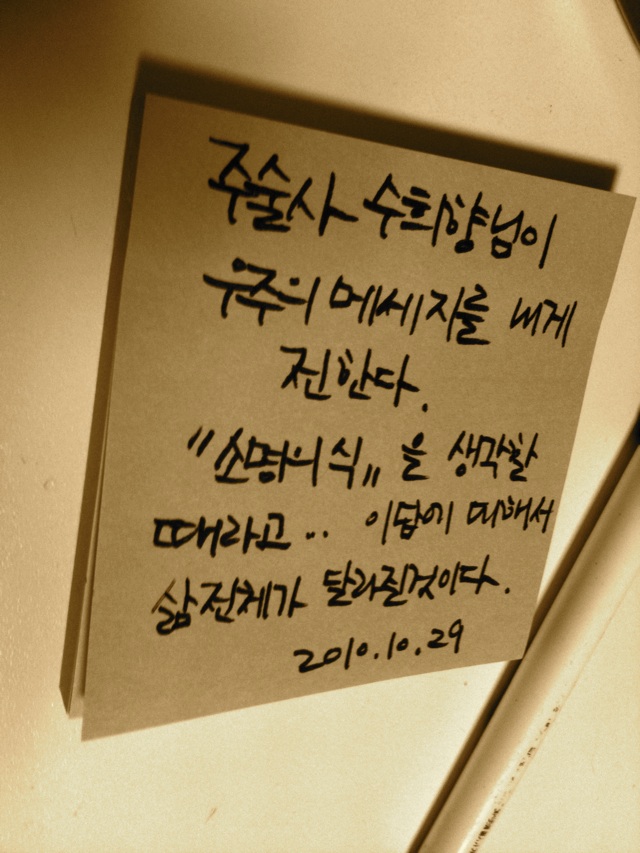 주술사 수희향님이
우주의 메세지를 내게
전한다.
"소명의식" 을 생각할
때라고.. 이답에 의해서
삶전체가 달라질것이다.
2010.10.29